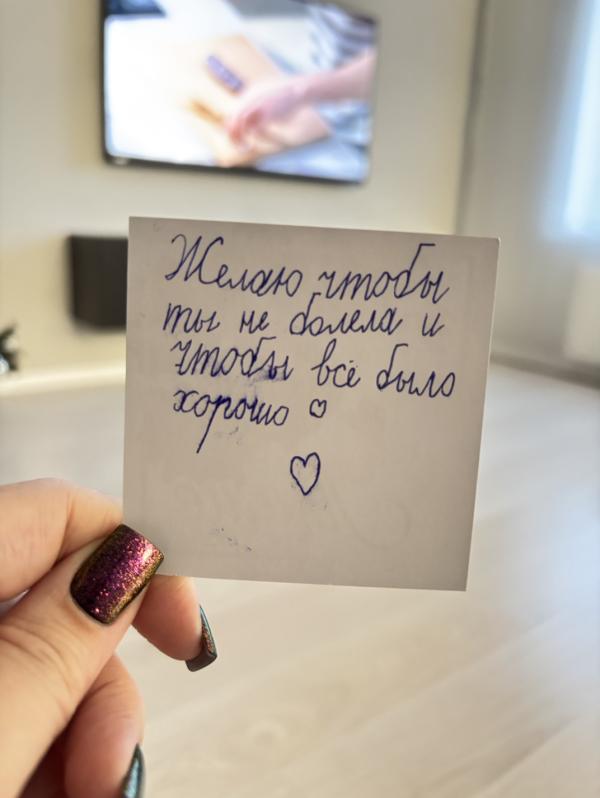 Желаю чтобы
ты не болела и
чтобы всё было
хорошо ♡
♡